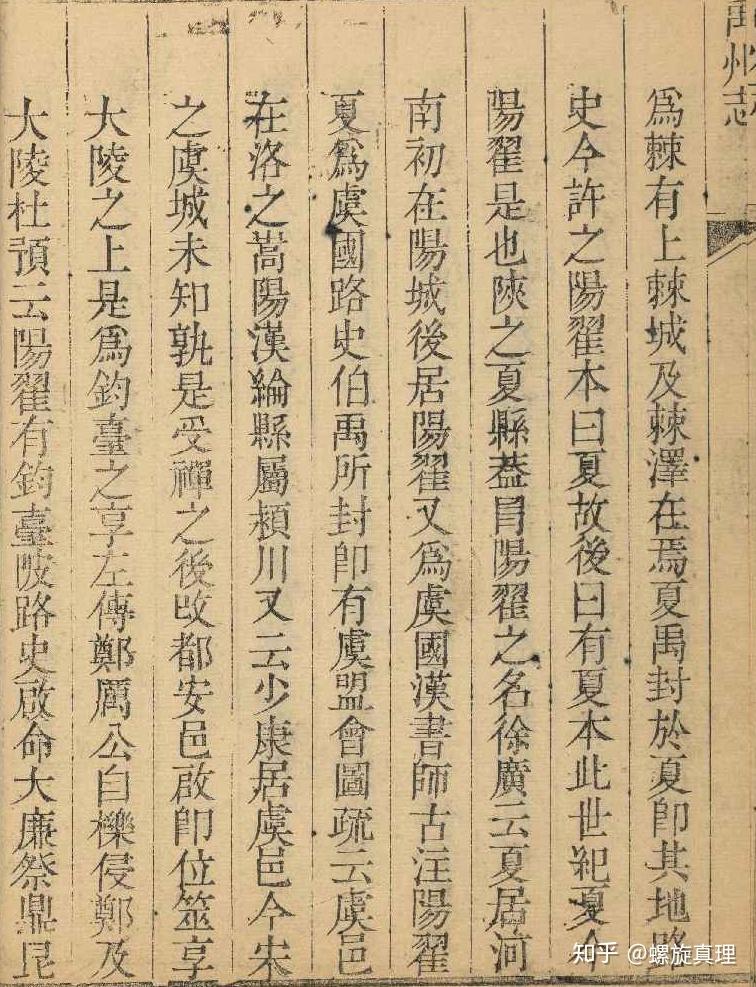 禹州志
爲棘有上棘城及棘澤在焉夏禹封於夏卽其地路
史今許之陽翟本曰夏故後曰有夏本此世紀夏今
陽翟是也陝之夏縣葢冐陽翟之名徐廣云夏居河
南初在陽城後居陽翟又爲虞國漢書師古注陽翟
夏爲虞國路史伯禹所封卽有虞盟會圖疏云虞邑
在洛之嵩陽漢綸縣屬潁川又云少康居虞邑今宋
之虞城未知孰是受禪之後改都安邑啟卽位筮享
大陵之上是爲鈞臺之享左傳鄭厲公自櫟侵鄭及
大陵杜預云陽翟有鈞臺陂路史啟命大廉祭鼎昆
知乎 @螺旋真理